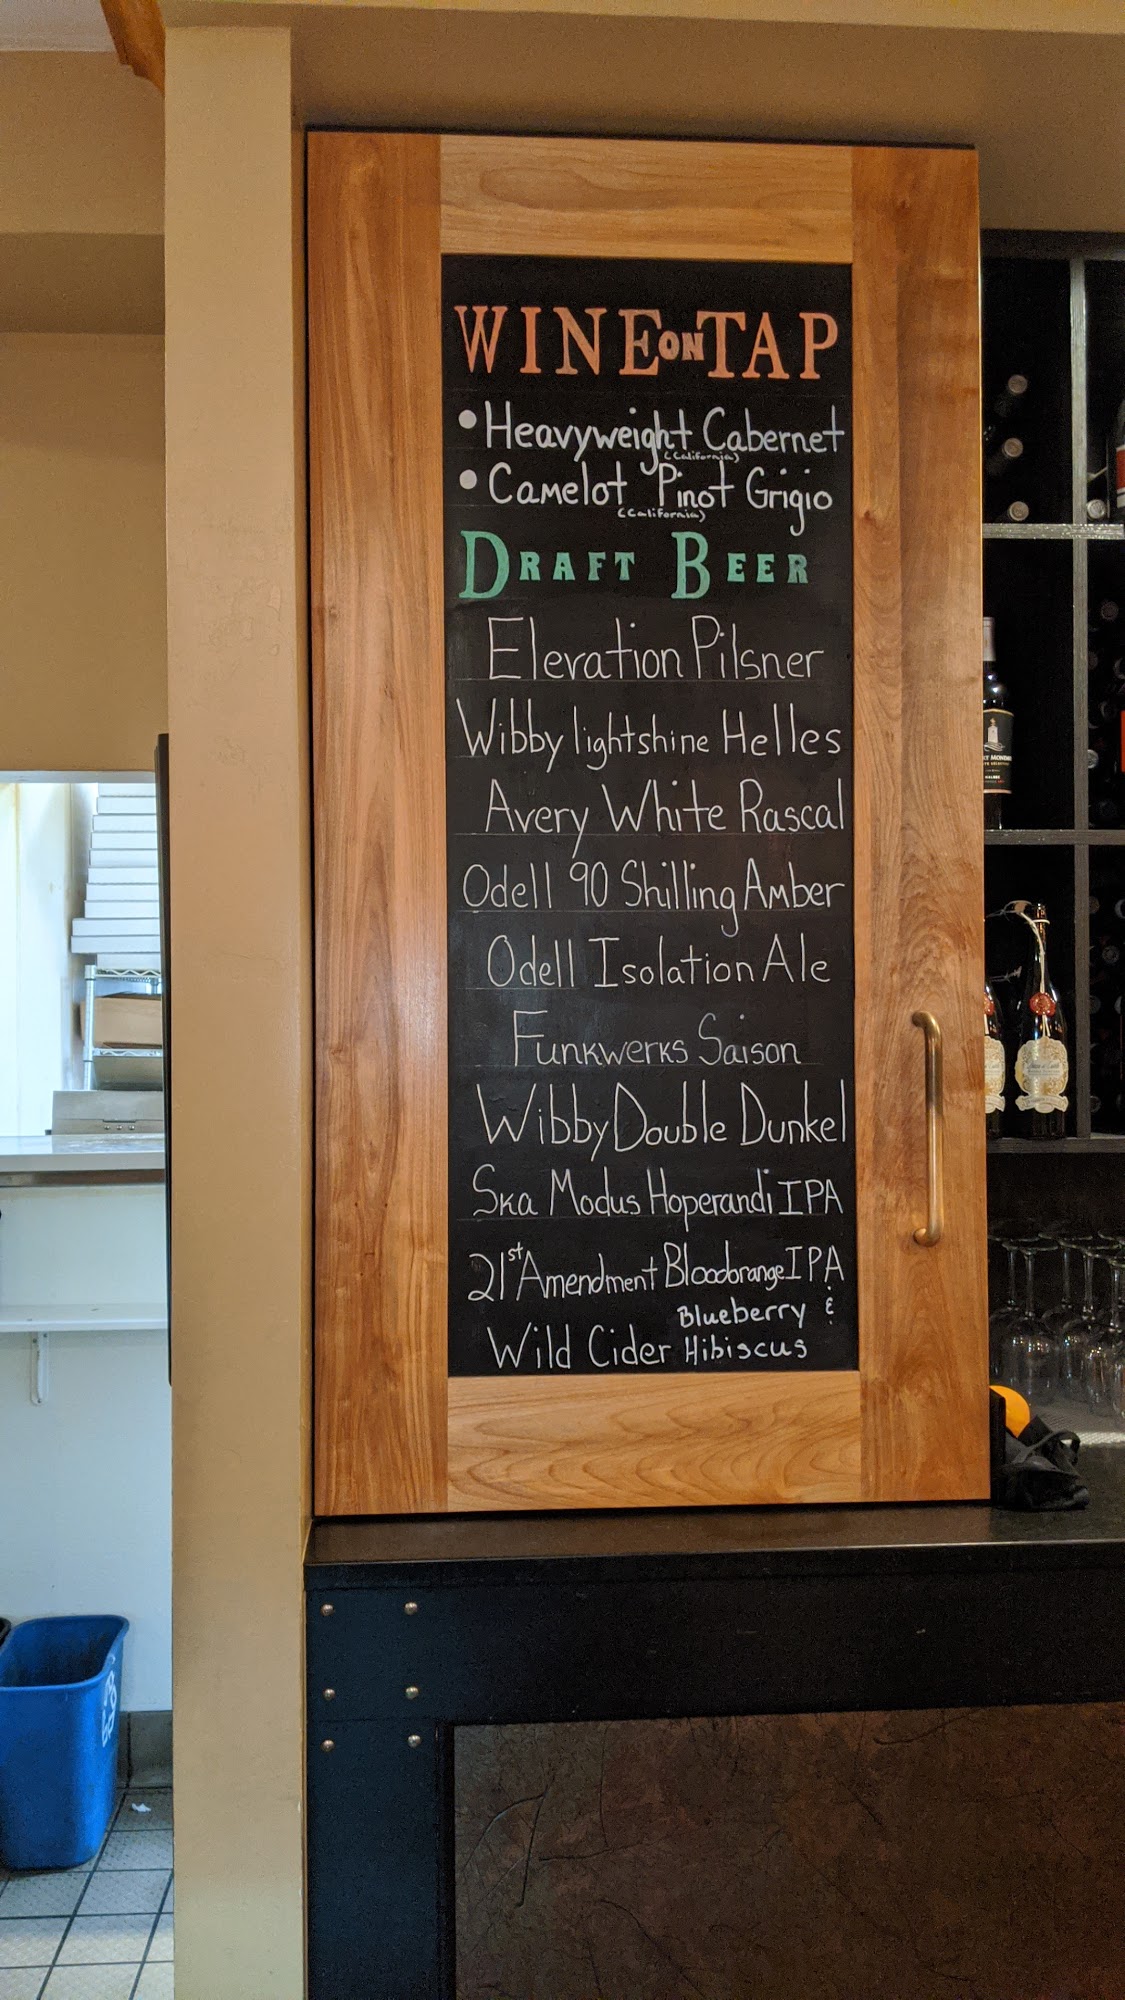 WINE ON TAP
• Heavyweight Cabernet
(California)
• Camelot Pinot Grigio
(California)
DRAFT BEER
Elevation Pilsner
Wibby lightshine Helles
Avery White Rascal
Odell 90 Shilling Amber
Odell Isolation Ale
Funkwerks Saison
Wibby Double Dunkel
Ska Modus Hoperandi IPA
21st Amendment Bloodorange IPA
Blueberry &
Wild Cider Hibiscus